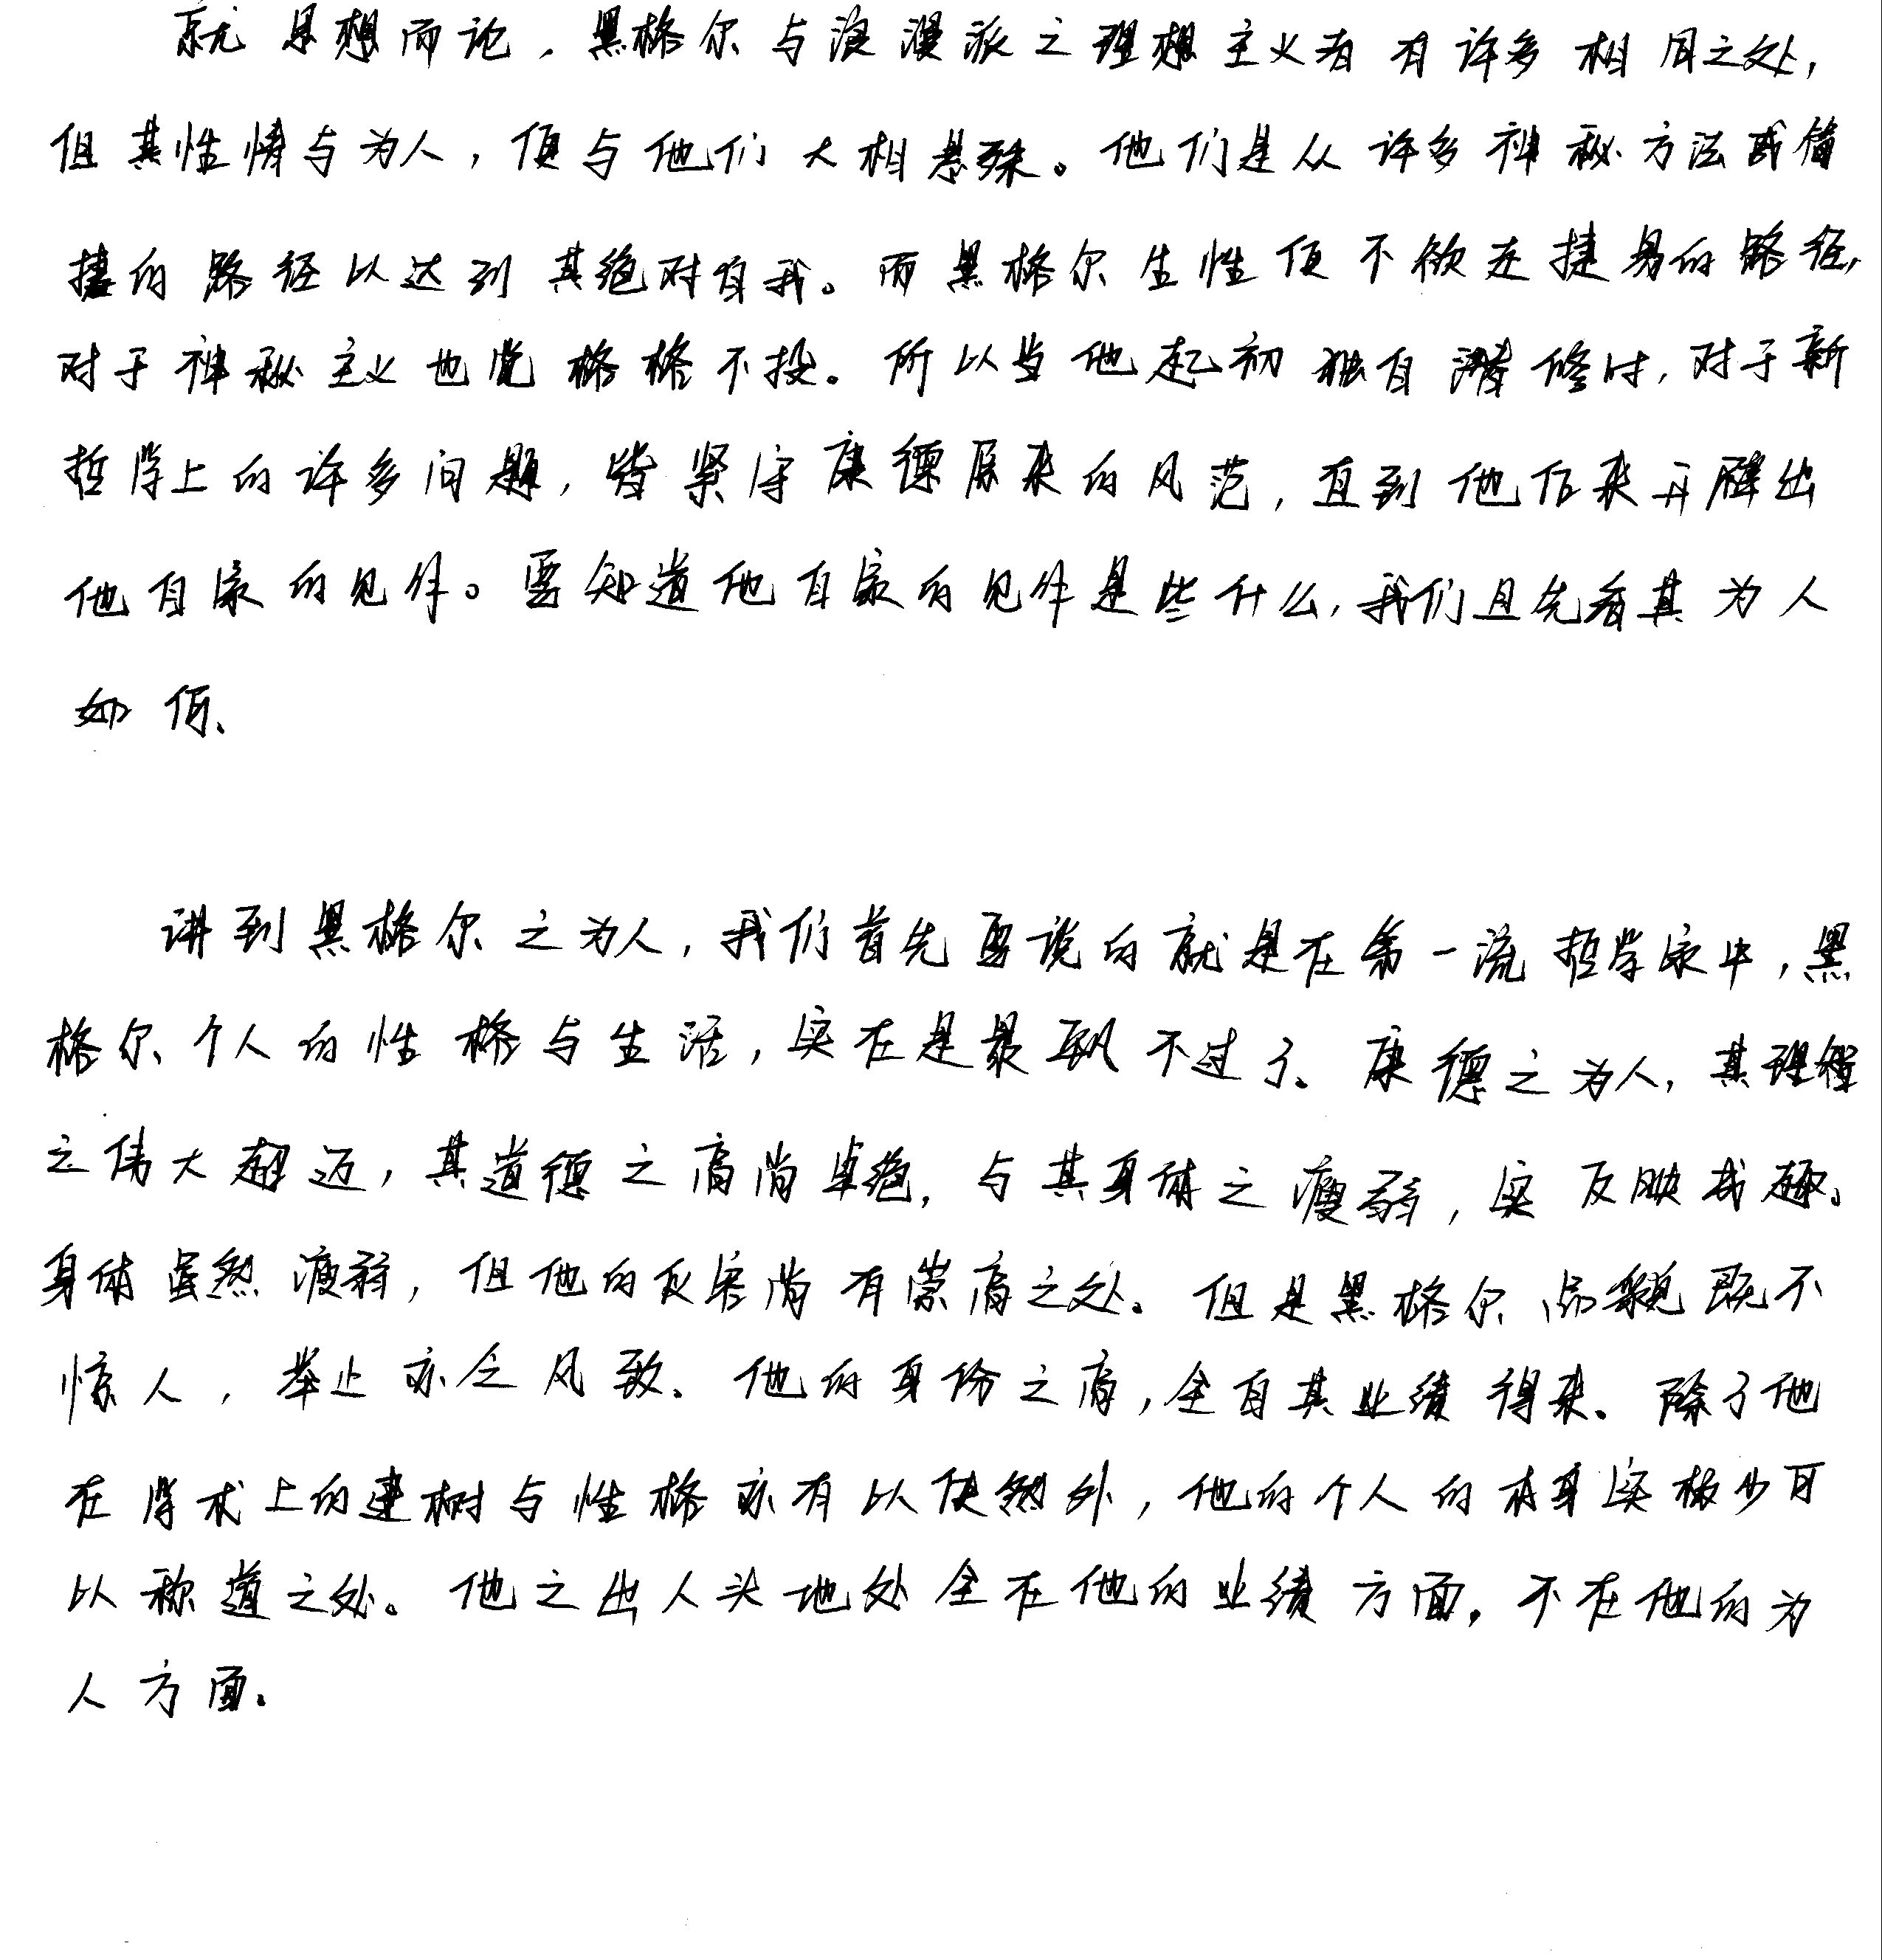 就思想而论，黑格尔与浪漫派之理想主义者有许多相同之处，
但其性情与为人，便与他们大相悬殊。他们是从许多神秘方法或简
捷的路径以达到其绝对自我。而黑格尔生性便不欲走捷易的路径，
对于神秘主义也觉格格不投。所以当他起初独自潜修时，对于新
哲学上的许多问题，皆紧守康德原来的风范，直到他后来开辟出
他自家的见解。要知道他自家的见解是些什么，我们且先看其为人
如何、
讲到黑格尔之为人，我们首先要说的就是在第一流哲学家中，黑
格尔个人的性格与生活，实在是最飘不过了、康德之为人，其理智
之伟大超迈，其道德之高尚卓绝，与其身体之瘦弱，实反映成趣、
身体虽然瘦弱，但他的灾害尚有崇高之处。但是黑格尔品貌既不
惊人，举止亦乏风致、他的身份之高，全自其业绩得来、除了他
在学术上的建树与性格亦有以使然外，他的个人的本身实极少可
以称道之处。他之出人头地处全在他的业绩方面，不在他的为
人方面。